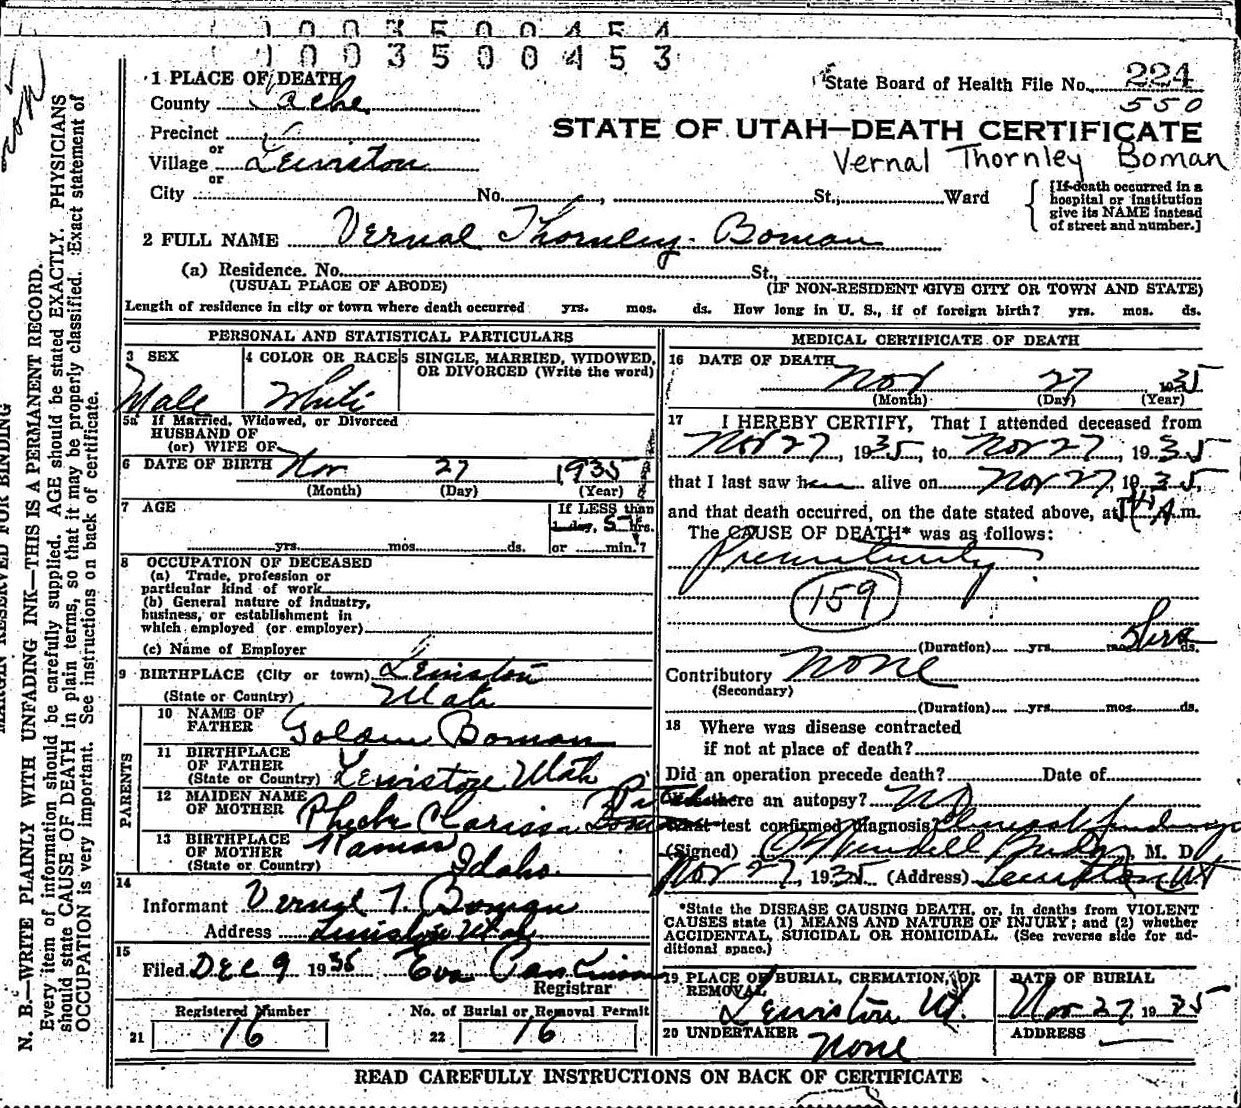 1 0 0 3 5 0 0 4 5 4
1 0 0 3 5 0 0 4 5 3
State Board of Health File No. 224
550
STATE OF UTAH—DEATH CERTIFICATE
Vernal Thornley Boman
1 PLACE OF DEATH
County Cache
Precinct
or
Village Lewiston
or
City No. , St., Ward
[If death occurred in a hospital or institution give its NAME instead of street and number.]
2 FULL NAME Vernal Thornley Boman
(a) Residence. No. St.,
(USUAL PLACE OF ABODE) (IF NON-RESIDENT GIVE CITY OR TOWN AND STATE)
Length of residence in city or town where death occurred yrs. mos. ds. How long in U. S., if of foreign birth? yrs. mos. ds.
PERSONAL AND STATISTICAL PARTICULARS
3 SEX
Male
4 COLOR OR RACE
White
5 SINGLE, MARRIED, WIDOWED,
OR DIVORCED (Write the word)
5a If Married, Widowed, or Divorced
HUSBAND OF
(or) WIFE OF
6 DATE OF BIRTH Nov 27 1935
(Month) (Day) (Year)
7 AGE
yrs. mos. ds.
If LESS than
1 day, 5 hrs.
or min.?
8 OCCUPATION OF DECEASED
(a) Trade, profession or
particular kind of work
(b) General nature of industry,
business, or establishment in
which employed (or employer)
(c) Name of Employer
9 BIRTHPLACE (City or town) Lewiston
(State or Country) Utah
PARENTS
10 NAME OF
FATHER Golden Boman
11 BIRTHPLACE
OF FATHER
(State or Country) Lewiston Utah
12 MAIDEN NAME
OF MOTHER Phebe Clarissa
13 BIRTHPLACE
OF MOTHER
(State or Country) Idaho
14
Informant Vernal T. Boman
Address Lewiston Utah
15
Filed Dec 9 1935 Eva
Registrar
Registered Number
21 16
No. of Burial or Removal Permit
22 16
MEDICAL CERTIFICATE OF DEATH
16 DATE OF DEATH
Nov 27 1935
(Month) (Day) (Year)
17 I HEREBY CERTIFY, That I attended deceased from
Nov 27, 1935, to Nov 27, 1935
that I last saw h alive on Nov 27, 1935,
and that death occurred, on the date stated above, at A.m.
The CAUSE OF DEATH* was as follows:
Prematurity
159
(Duration) yrs. mos. ds.
5 hrs
Contributory None
(Secondary)
(Duration) yrs. mos. ds.
18 Where was disease contracted
if not at place of death?
Did an operation precede death? Date of
Was there an autopsy? No
What test confirmed diagnosis?
(Signed) M. D.
Nov 27, 1935 (Address) Lewiston Ut
*State the DISEASE CAUSING DEATH, or, in deaths from VIOLENT
CAUSES state (1) MEANS AND NATURE OF INJURY; and (2) whether
ACCIDENTAL, SUICIDAL OR HOMICIDAL. (See reverse side for ad-
ditional space.)
19 PLACE OF BURIAL, CREMATION, OR
REMOVAL
Lewiston Ut.
DATE OF BURIAL
Nov 27 1935
20 UNDERTAKER
None
ADDRESS
READ CAREFULLY INSTRUCTIONS ON BACK OF CERTIFICATE
MARGIN RESERVED FOR BINDING
N. B.—WRITE PLAINLY WITH UNFADING INK—THIS IS A PERMANENT RECORD.
Every item of information should be carefully supplied. AGE should be stated EXACTLY. PHYSICIANS
should state CAUSE OF DEATH in plain terms, so that it may be properly classified. Exact statement of
OCCUPATION is very important. See instructions on back of certificate.